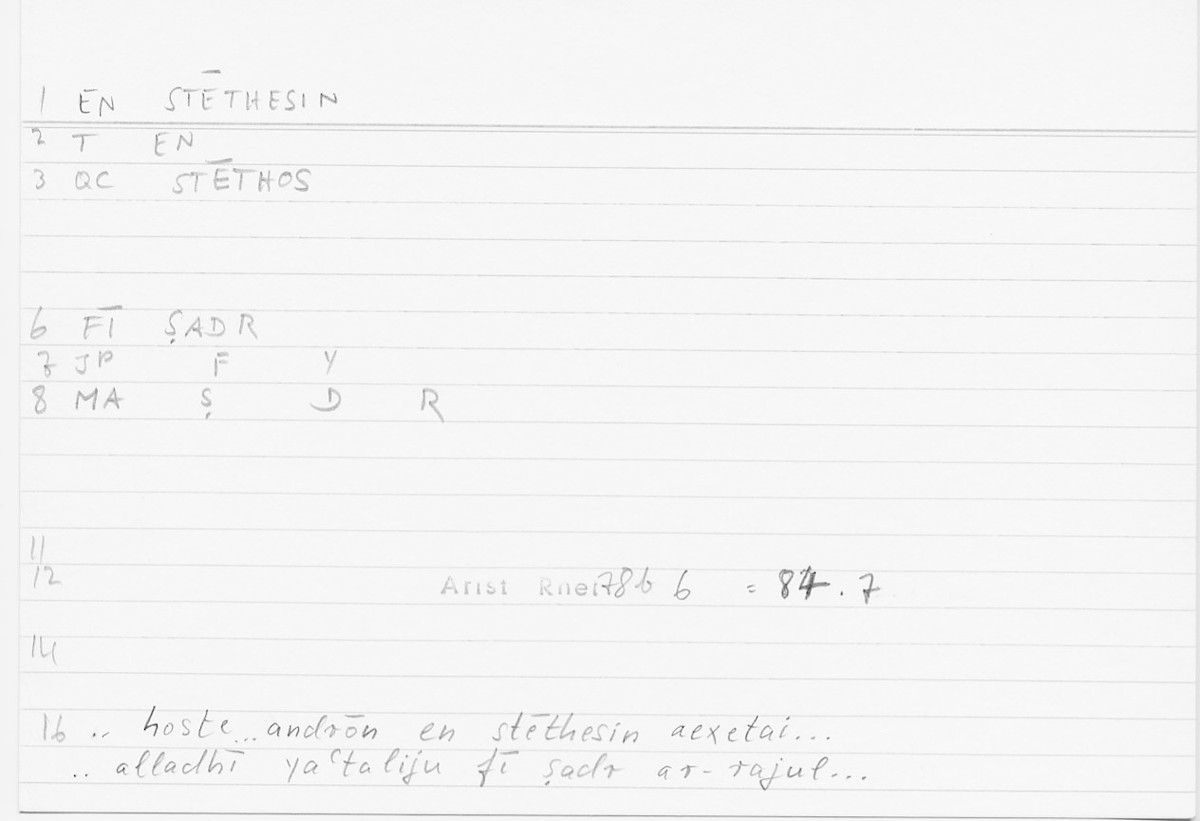 1 EN STĒTHESIN
2 T EN
3 QC STĒTHOS
6 FĪ ṢADR
7 JP F Y
8 MA Ṣ D R
11
12 Arist Rhet 78b 6 = 84.7
14
16 .. hoste... andrōn en stēthesin aexetai...
.. alladhī yaʿtaliju fī ṣadr ar-rajul...